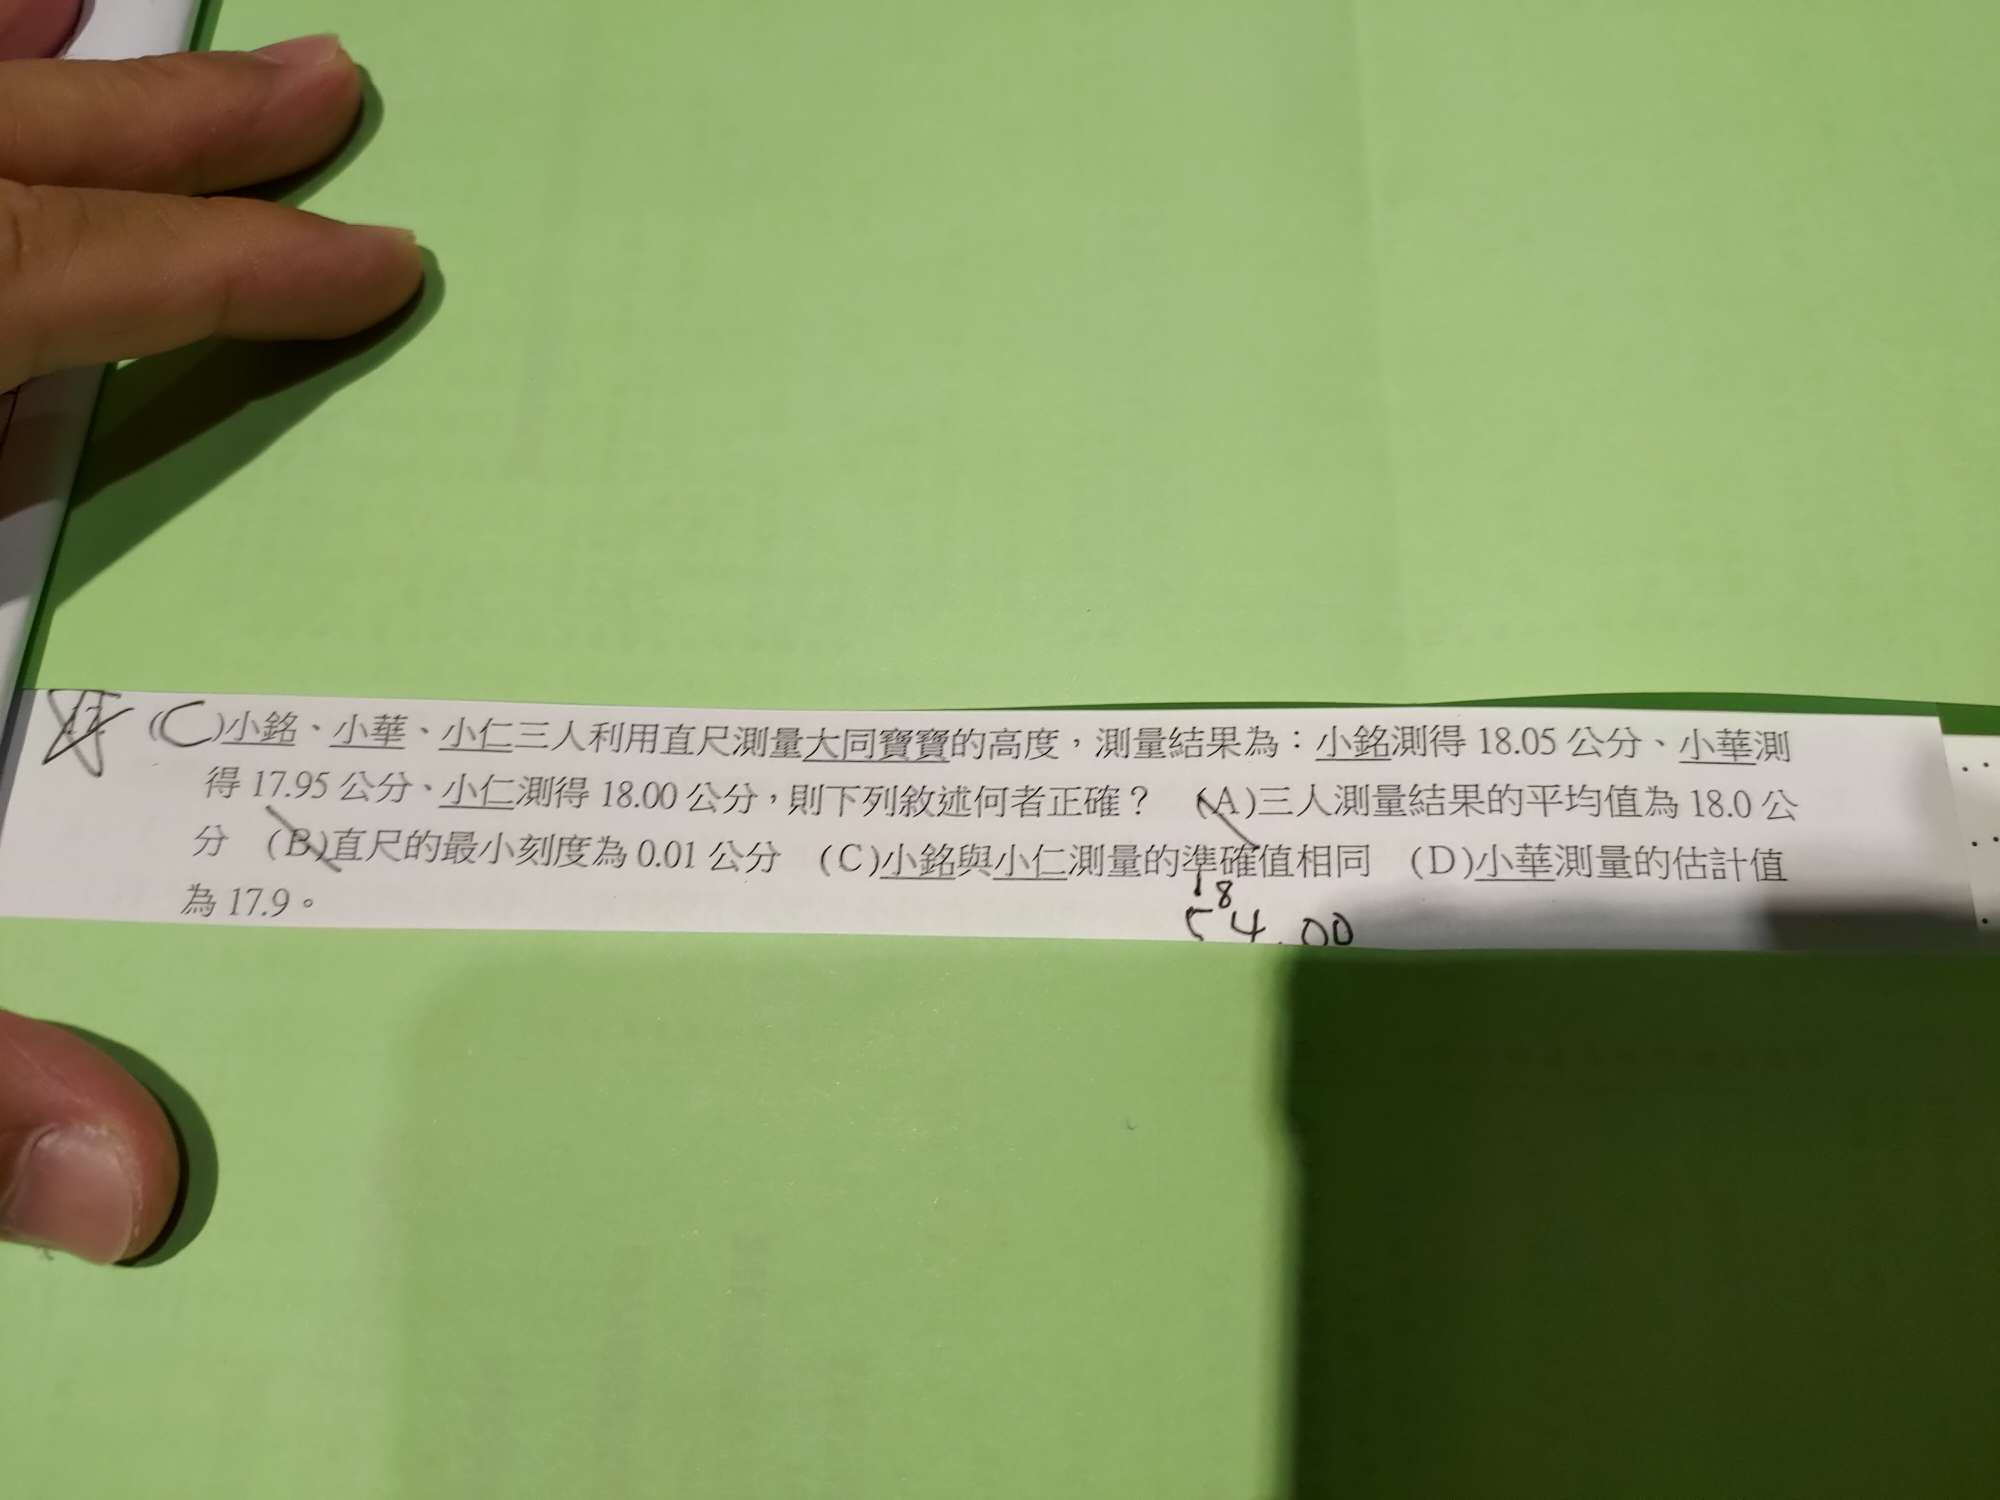 (C)小銘、小華、小仁三人利用直尺測量大同寶寶的高度，測量結果為：小銘測得 18.05 公分、小華測
得 17.95 公分、小仁測得 18.00 公分，則下列敘述何者正確？ (A)三人測量結果的平均值為 18.0 公
分 (B)直尺的最小刻度為 0.01 公分 (C)小銘與小仁測量的準確值相同 (D)小華測量的估計值
為 17.9。
18
54.00